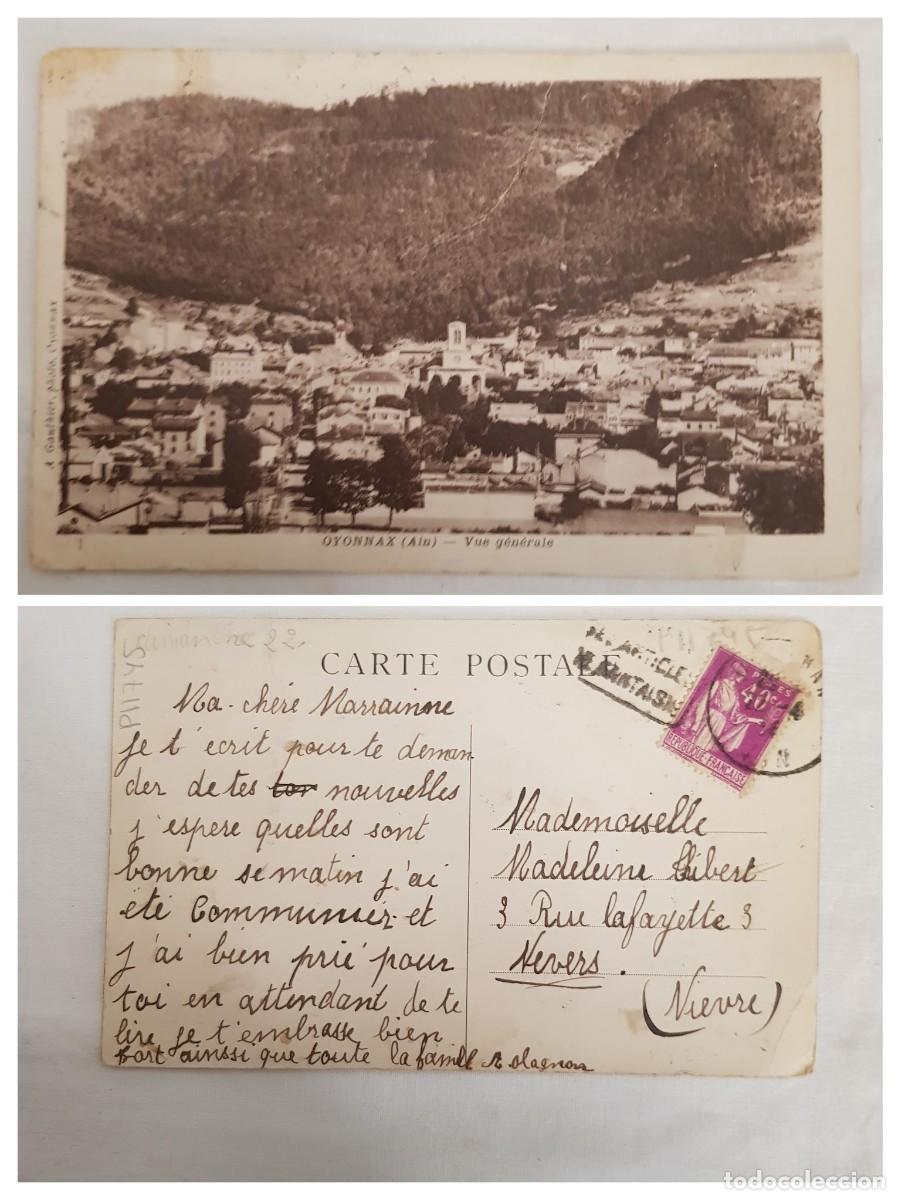 A Gauthier, photo, Oyonnax
OYONNAX (Ain) — Vue générale
PI1745
dimanche 22
CARTE POSTALE
ARTICLE
POSTES
40c
REPUBLIQUE-FRANÇAISE
Ma-chére Marrainne
Je t'écrit pour te deman
der de tes nouvelles
j'espere quelles sont
bonne se matin j'ai
été Communiér et
j'ai bien prié pour
toi en attendant de te
lire je t'embrasse bien
fort ainssi que toute la famill
Mademoiselle
Madeleine
3 Rue lafayette 3
Nevers.
(Nievre)
todocoleccion.net